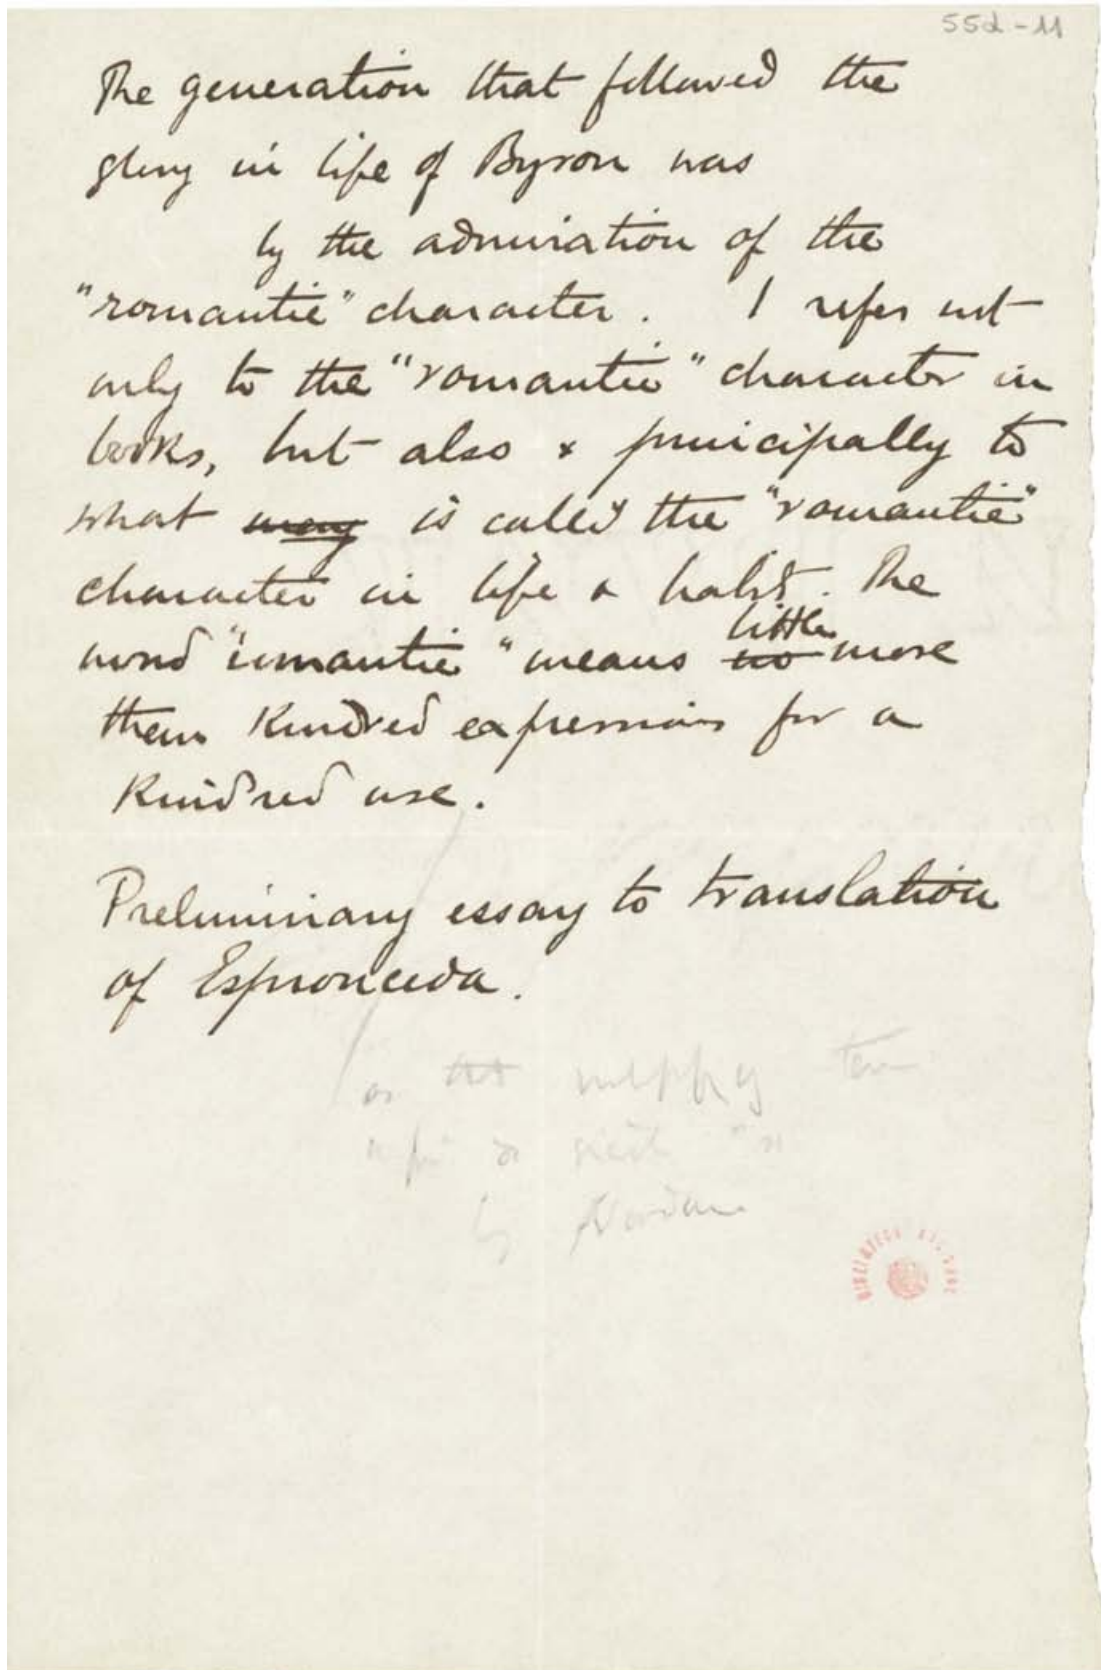 55d-11
The generation that followed the
glory in life of Byron was
by the admiration of the
"romantic" character. I refer not
only to the "romantic" character in
books, but also & principally to
what may is called the "romantic"
character in life & habit. The
little
word "romantic" means no more
than kindred expressions for a
kindred use.
Preliminary essay to translation
of Espronceda.
by